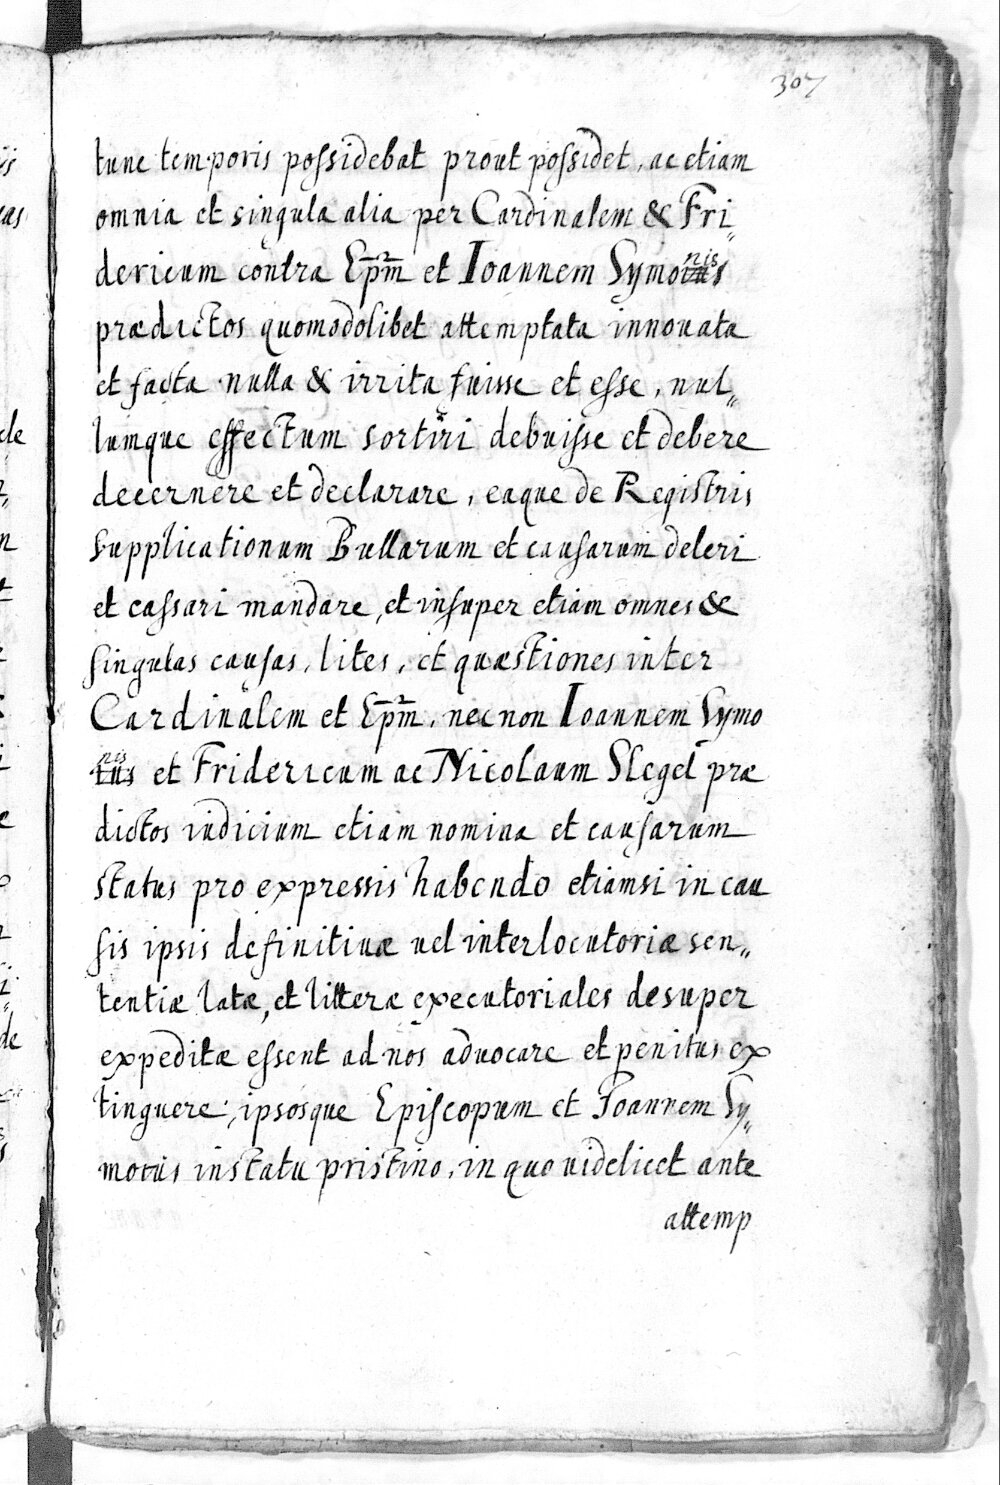 307
tunc temporis possidebat prout possidet, ac etiam
omnia et singula alia per Cardinalem & Fri„
dericum contra Ep̄m et Ioannem Symonis
prædictos quomodolibet attemptata innouata
et facta nulla & irrita fuisse et esse, nul„
lumque effectum sortiri debuisse et debere
decernere et declarare, eaque de Registris
supplicationum Bullarum et causarum deleri
et cassari mandare, et insuper etiam omnes &
singulas causas, lites, et quæstiones inter
Cardinalem et Ep̄m, nec non Ioannem Symo
nis et Fridericum ac Nicolaum Slegel præ
dictos iudicium etiam nomina et causarum
status pro expressis habendo etiamsi in cau
sis ipsis definitiuæ uel interlocutoriæ sen„
tentiæ latæ, et litteræ executoriales desuper
expeditæ essent ad nos aduocare et penitus ex
tinguere, ipsosque Episcopum et Ioannem Sy„
monis in statu pristino, in quo uidelicet ante
attemp